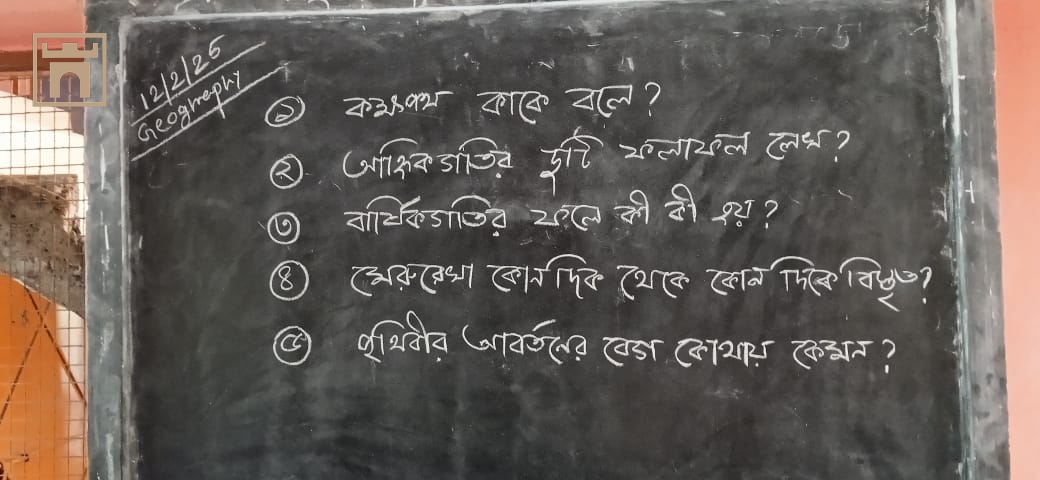 12/2/26
Geography
১ কক্ষপথ কাকে বলে?
২ আহ্নিকগতির দুটি ফলাফল লেখ?
৩ বার্ষিকগতির ফলে কী কী হয়?
৪ মেরুরেখা কোন দিক থেকে কোন দিকে বিস্তৃত?
৫ পৃথিবীর আবর্তনের বেগ কোথায় কেমন?